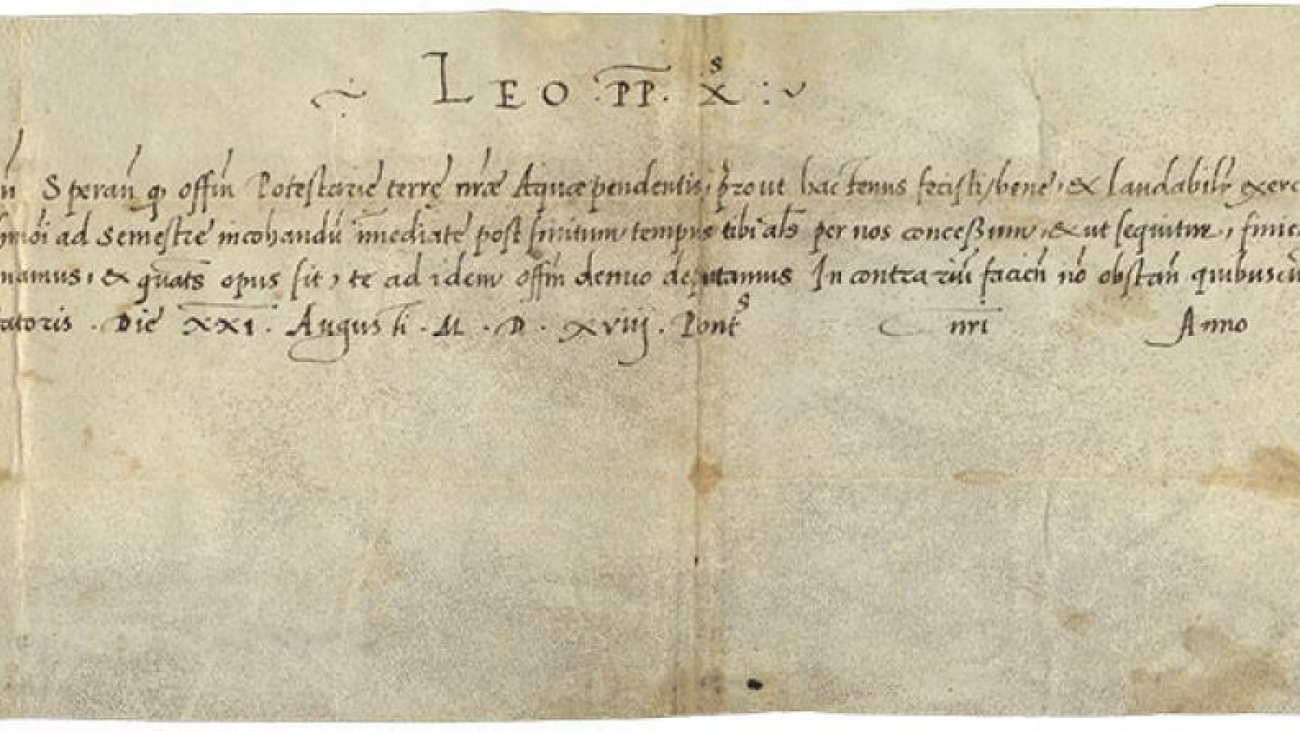 LEO · PP · X s
Sperañ q offiñ Potestarie terrę nræ Aquæpendentis, prout hactenus fecisti, bene, & laudabilr exerc
ad semestre incohandũ immediate post finitum tempus tibi als per nos conceßum, & ut sequitur, finie
namus, & quats opus sit, te ad idem offiñ denuo deputamus In contrariũ facieñ nõ obstañ quibuscũ
ratoris · Die XXI · Augusti · M · D · XVIIJ · Pont s nri Anno